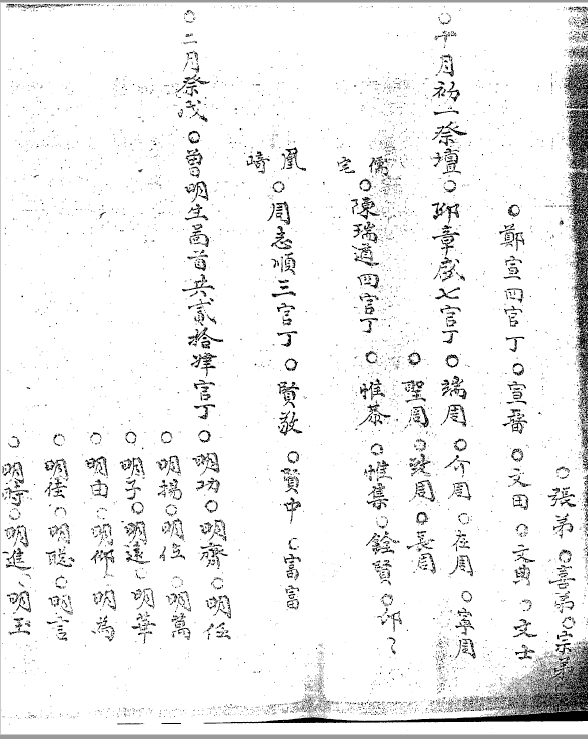 ○張弟○喜弟○宗弟
○鄭宣四官丁○宣番○文田○文典○文士
○十月初一祭壇○邱章啟七官丁○端周○介周○在周○寧周
○聖周○述周○長周
儒宅○陳瑞適四官丁○惟恭○惟集○銓賢○邱
凰崎○周志順三官丁○賢敬○賢中○富富
○二月祭戊○曾明生啚首共貳拾肆官丁○明功○明齊○明任
○明揚○明位○明萬
○明子○明遠○明華
○明由○明仰○明為
○明佳○明聰○明言
○明時○明進○明玉